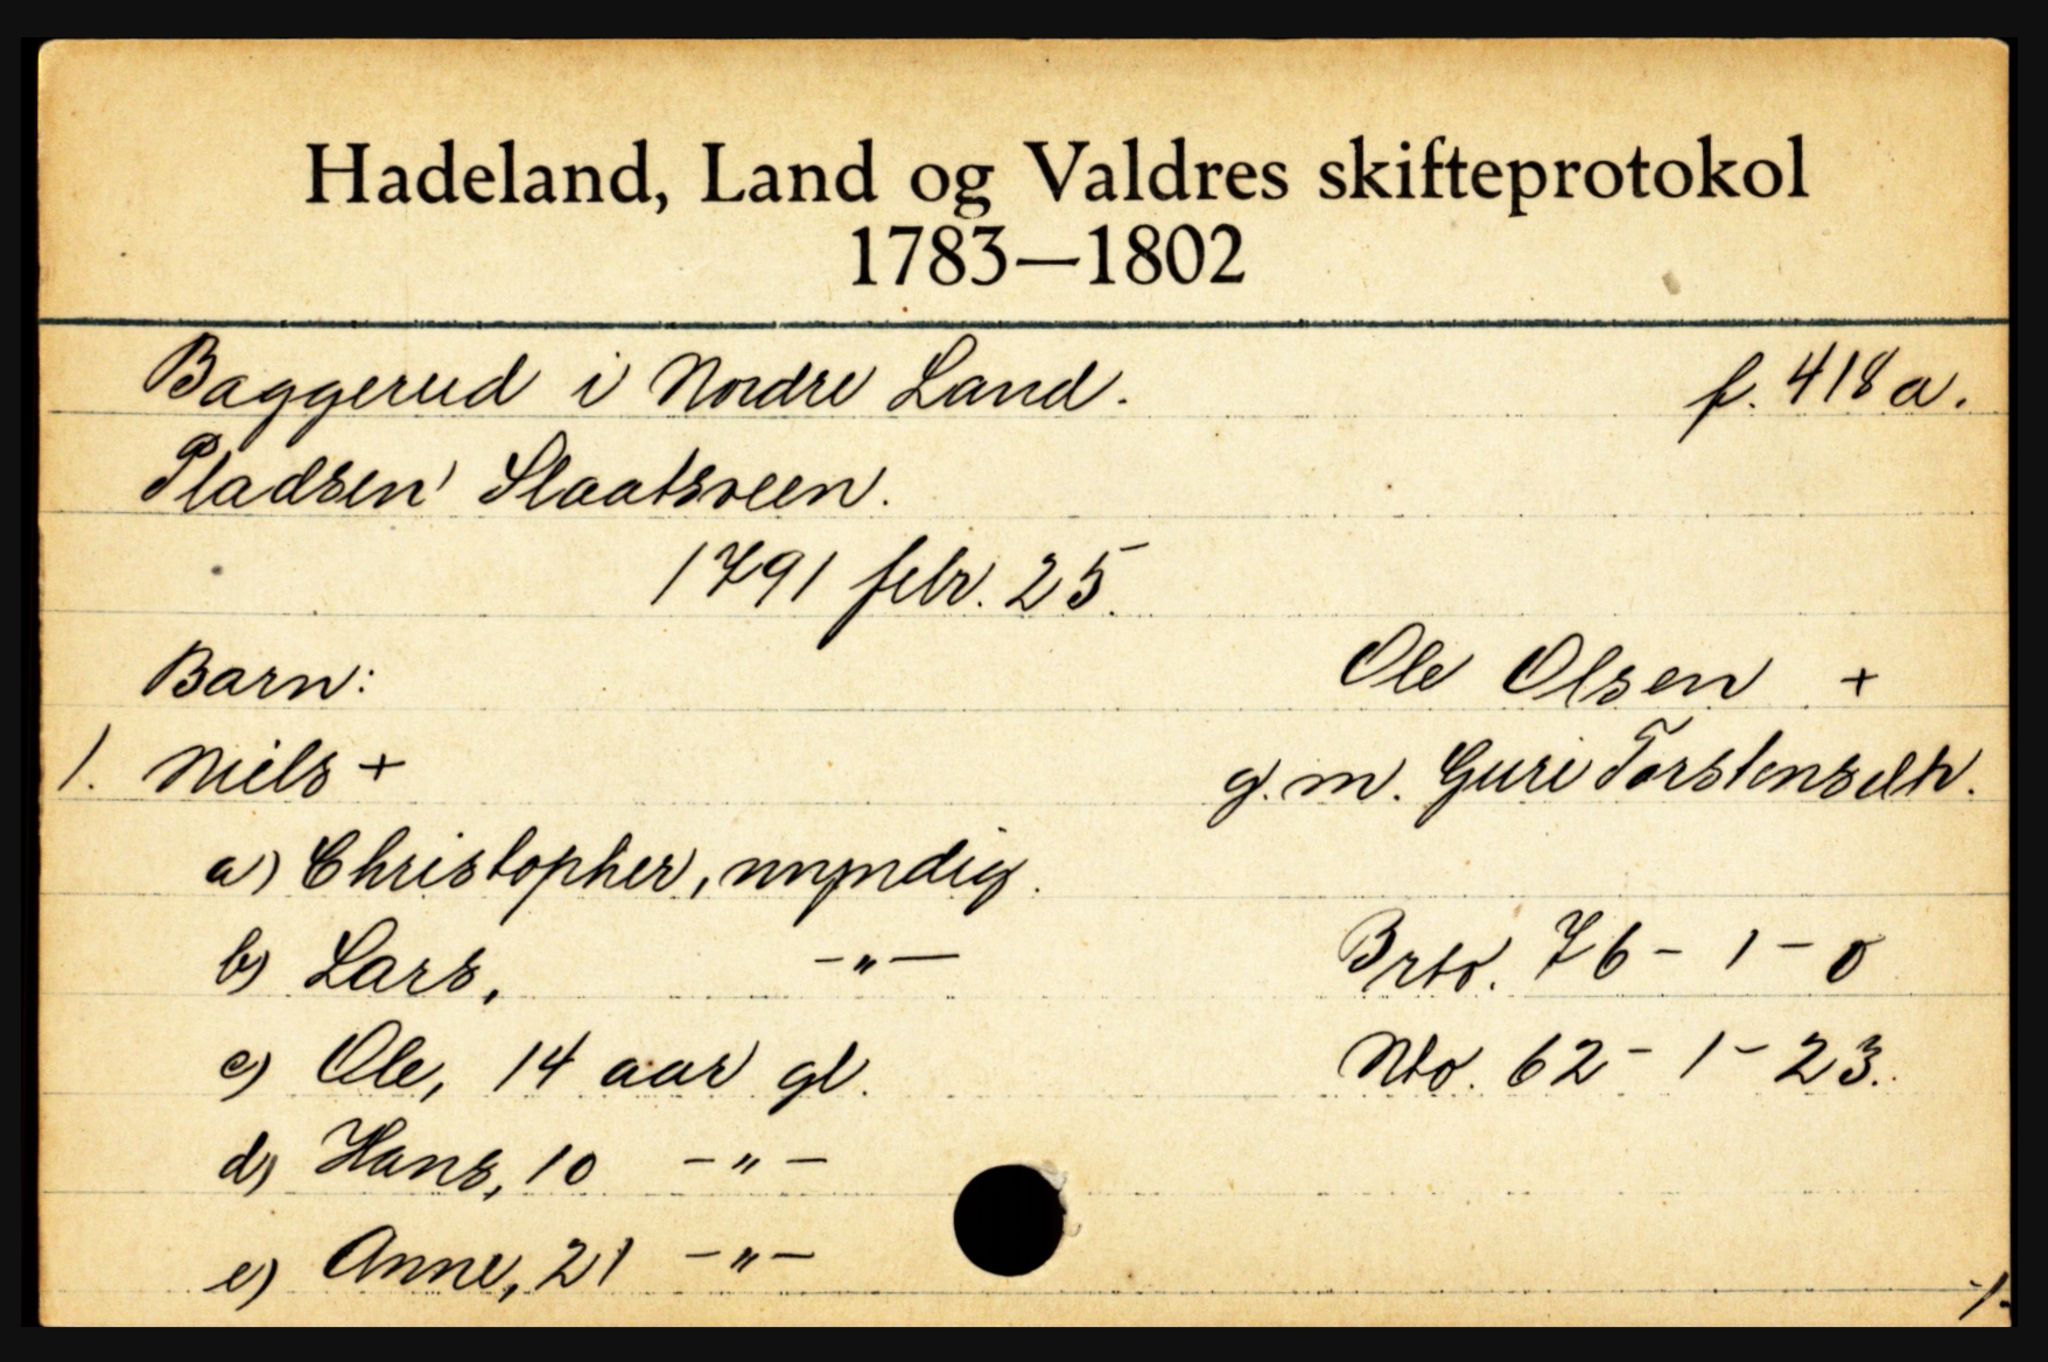 Hadeland, Land og Valdres skifteprotokol
1783—1802
Baggerud i Nordre Land. f. 418 a.
Pladsen Slaatsveen.
1791 febr. 25.
Barn: Ole Olsen +
1. Niels + g. m. Guri Torstensdtr.
a) Christopher, myndig.
b) Lars, —"— Brto. 76 - 1 - 0
c) Ole, 14 aar gl. Nto. 62 - 1 - 23.
d) Hans, 10 —"—
e) Anne, 21 —"—